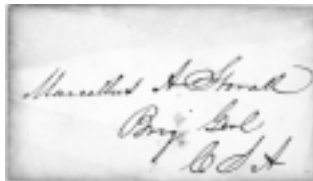 Marcellus A Stovall
Brig Genl
C S A